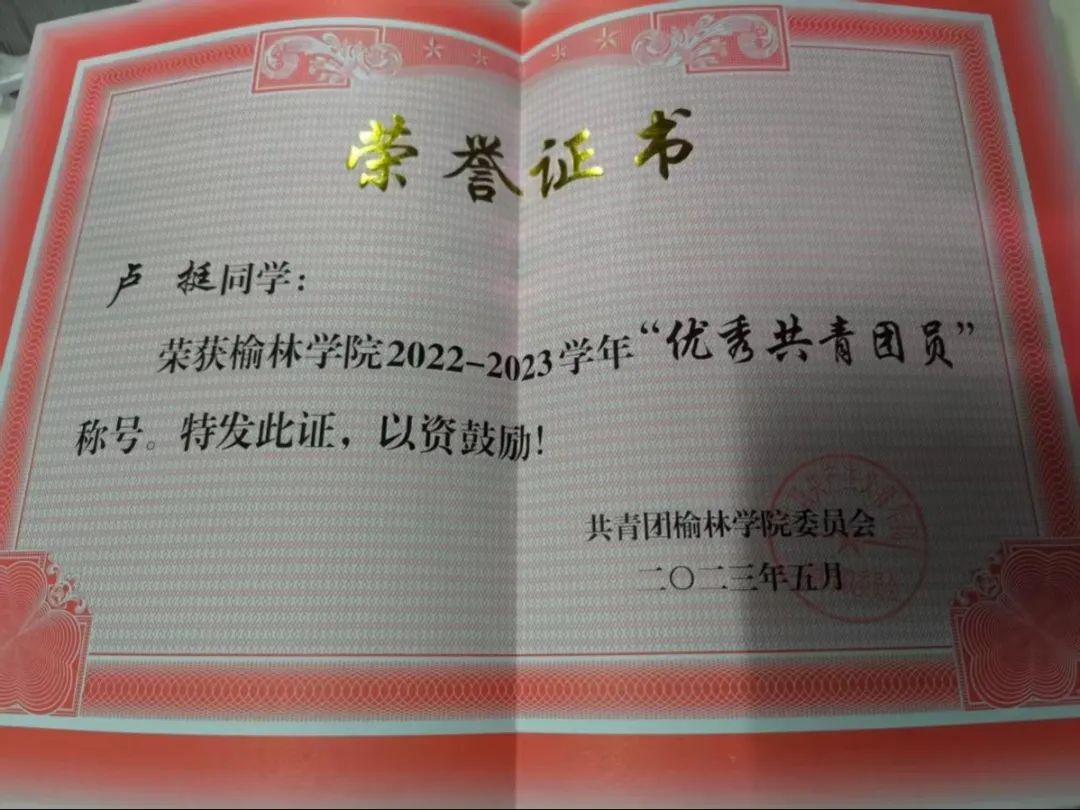 荣誉证书
卢 挺同学：
荣获榆林学院2022-2023学年“优秀共青团员”
称号。特发此证，以资鼓励！
共青团榆林学院委员会
二〇二三年五月